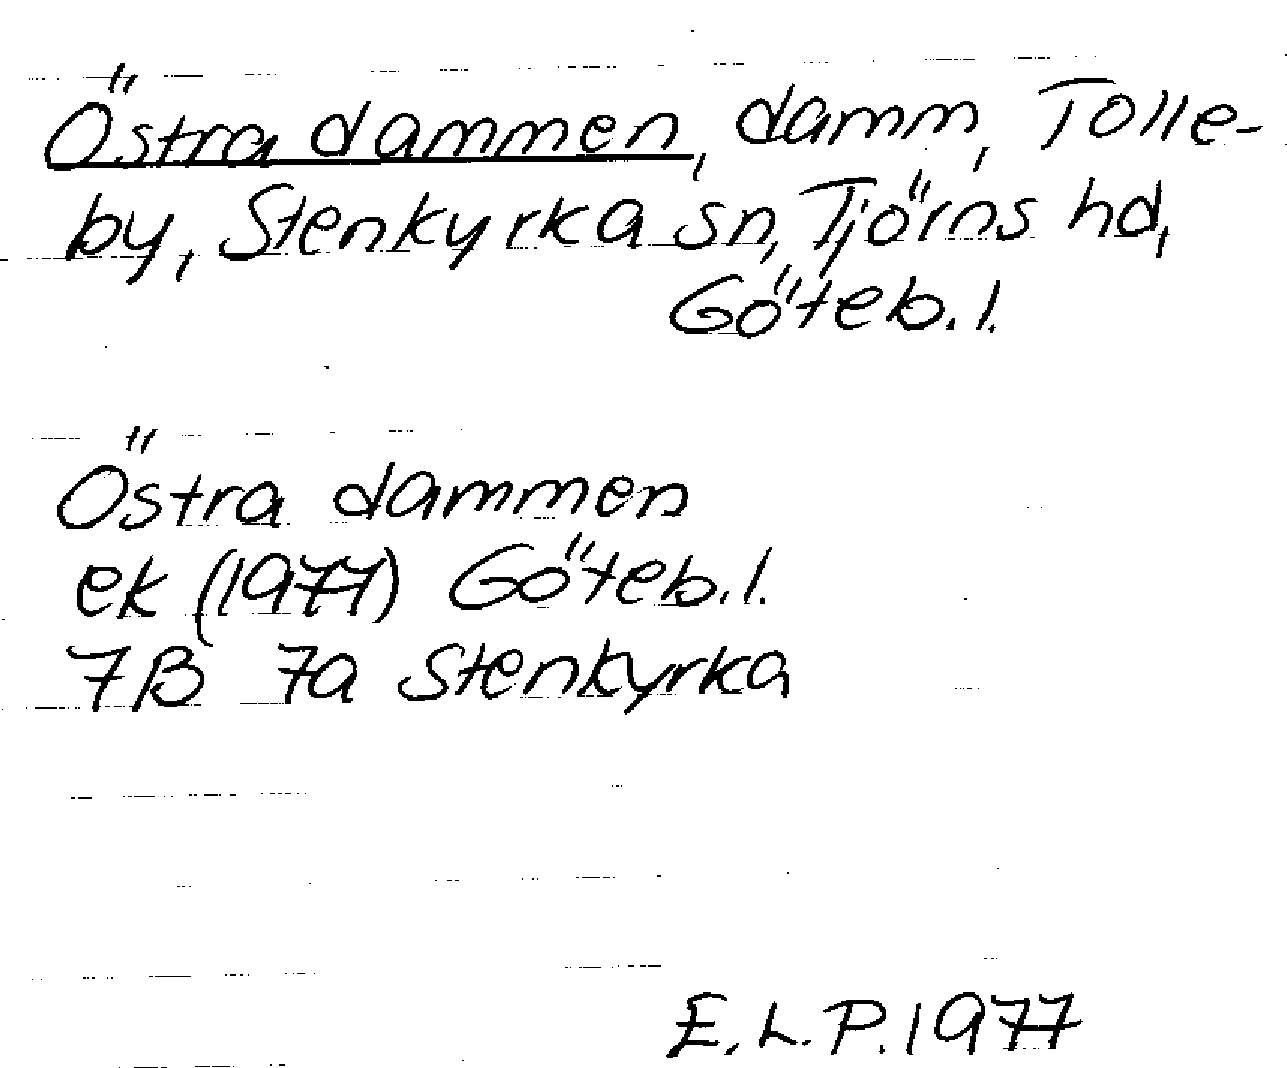 Östra dammen, damm, Tolle-
by, Stenkyrka sn, Tjörns hd,
Göteb. l.
Östra dammen
ek (1977) Göteb. l.
7B 7a Stenkyrka
E. L. P. 1977